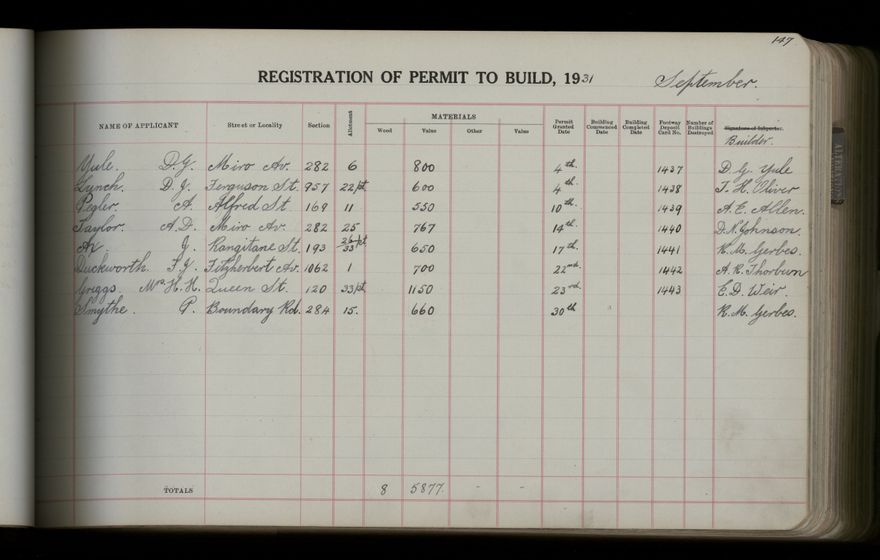 147
REGISTRATION OF PERMIT TO BUILD, 1931 September.
NAME OF APPLICANT Street or Locality Section Allotment MATERIALS Wood Value Other Value Permit Granted Date Building Commenced Date Building Completed Date Footway Deposit Card No. Number of Buildings Destroyed Signature of Inspector. Builder.
Yule. D.G. Miro Av. 282 6 800 4th. 1437 D. G. Yule
Lynch. D.J. Ferguson St. 957 22/pt 600 4th. 1438 T. H. Oliver
Pegler. A. Alfred St 169 11 550 10th. 1439 A. E. Allen.
Taylor. A.D. Miro Av. 282 25 767 14th. 1440 D. N. Johnson.
J. Rangitane St. 193 650 17th. 1441 K. M. Gerbes.
Duckworth. F.G. Fitzherbert Av. 1062 1 700 22nd. 1442 A. R. Thorburn
Griggs. Mrs H. H. Queen St. 120 33/pt 1150 23rd. 1443 E. D. Weir.
Smythe. P. Boundary Rd. 284 15. 660 30th K. M. Gerbes.
TOTALS 8 5877. - -